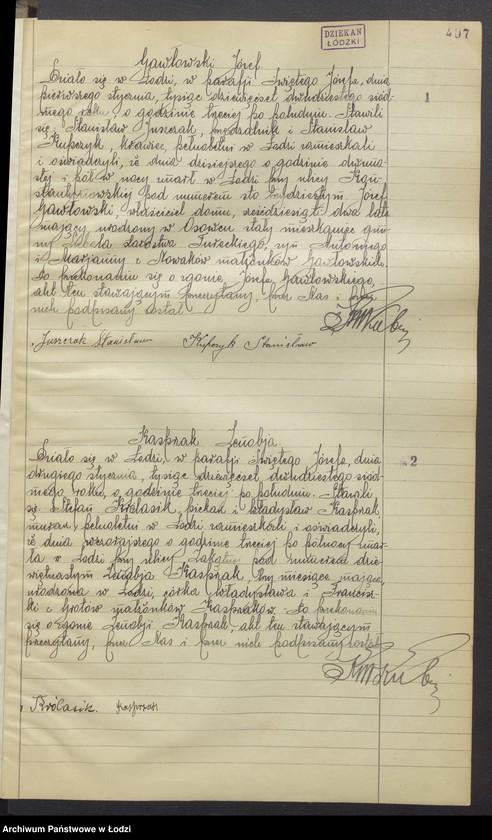 DZIEKAN
ŁÓDZKI
407
Gawłowski Józef
1
Działo się w Łodzi, w parafji Świętego Józefa, dnia
pierwszego stycznia, tysiąc dziewięćset dwudziestego siód-
mego roku o godzinie trzeciej po południu. Stawili
się, Stanisław Juszczak, i Stanisław
Kuperzyk, krawiec, pełnoletni w Łodzi zamieszkali
i oświadczyli, iż dnia dzisiejszego o godzinie dwuna-
stej i pół w nocy umarł w Łodzi przy ulicy Kon-
stantynowskiej pod numerem sto Józef
Gawłowski, właściciel domu, siedmdziesiąt dwa lata
mający, urodzony w stały mieszkaniec gmi-
ny Starostwa Tureckiego, syn Antoniego
i Marjanny z Nowaków małżonków Gawłowskich.
Po przekonaniu się o zgonie, Józefa Gawłowskiego,
akt ten stawającym przeczytany, przez Nas i przez
nich podpisany został.
Juszczak Stanisław Kuperzyk Stanisław
Kasprzak Zenobja.
2
Działo się w Łodzi, w parafji Świętego Józefa, dnia
drugiego stycznia, tysiąc dziewięćset dwudziestego siód-
mego roku, o godzinie trzeciej po południu. Stawili
się Stefan Królasik, piekarz i Władysław Kasprzak,
murarz, pełnoletni w Łodzi zamieszkali i oświadczyli,
iż dnia wczorajszego o godzinie trzeciej po północy umar-
ła w Łodzi przy ulicy pod numerem dzie-
więtnastym Zenobja Kasprzak, trzy miesiące mająca,
urodzona w Łodzi, córka Władysława i Francisz-
ki z Grotów małżonków Kasprzaków. Po przekonaniu
się o zgonie Zenobji Kasprzak, akt ten stawającym
przeczytany, przez Nas i przez nich podpisany został.
Królasik. Kasprzak
Archiwum Państwowe w Łodzi